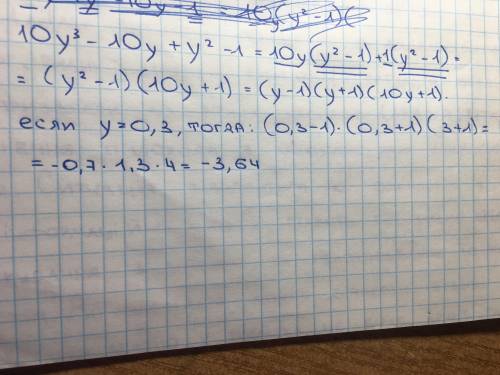 10y³ - 10y + y² - 1 = 10y(y² - 1) + 1(y² - 1) =
= (y² - 1)(10y + 1) = (y - 1)(y + 1)(10y + 1).
если y = 0,3, тогда: (0,3 - 1) · (0,3 + 1)(3 + 1) =
= -0,7 · 1,3 · 4 = -3,64